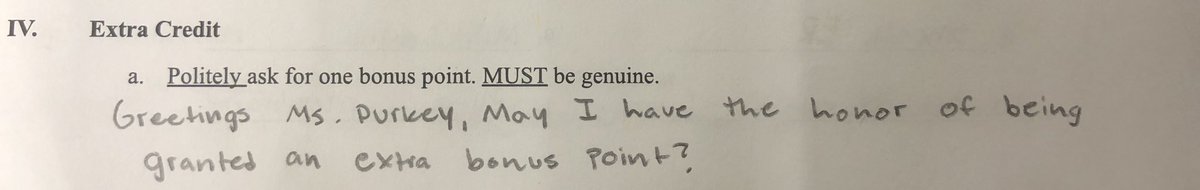 IV. Extra Credit
a. Politely ask for one bonus point. MUST be genuine.
Greetings Ms. Durkey, May I have the honor of being
granted an extra bonus point?